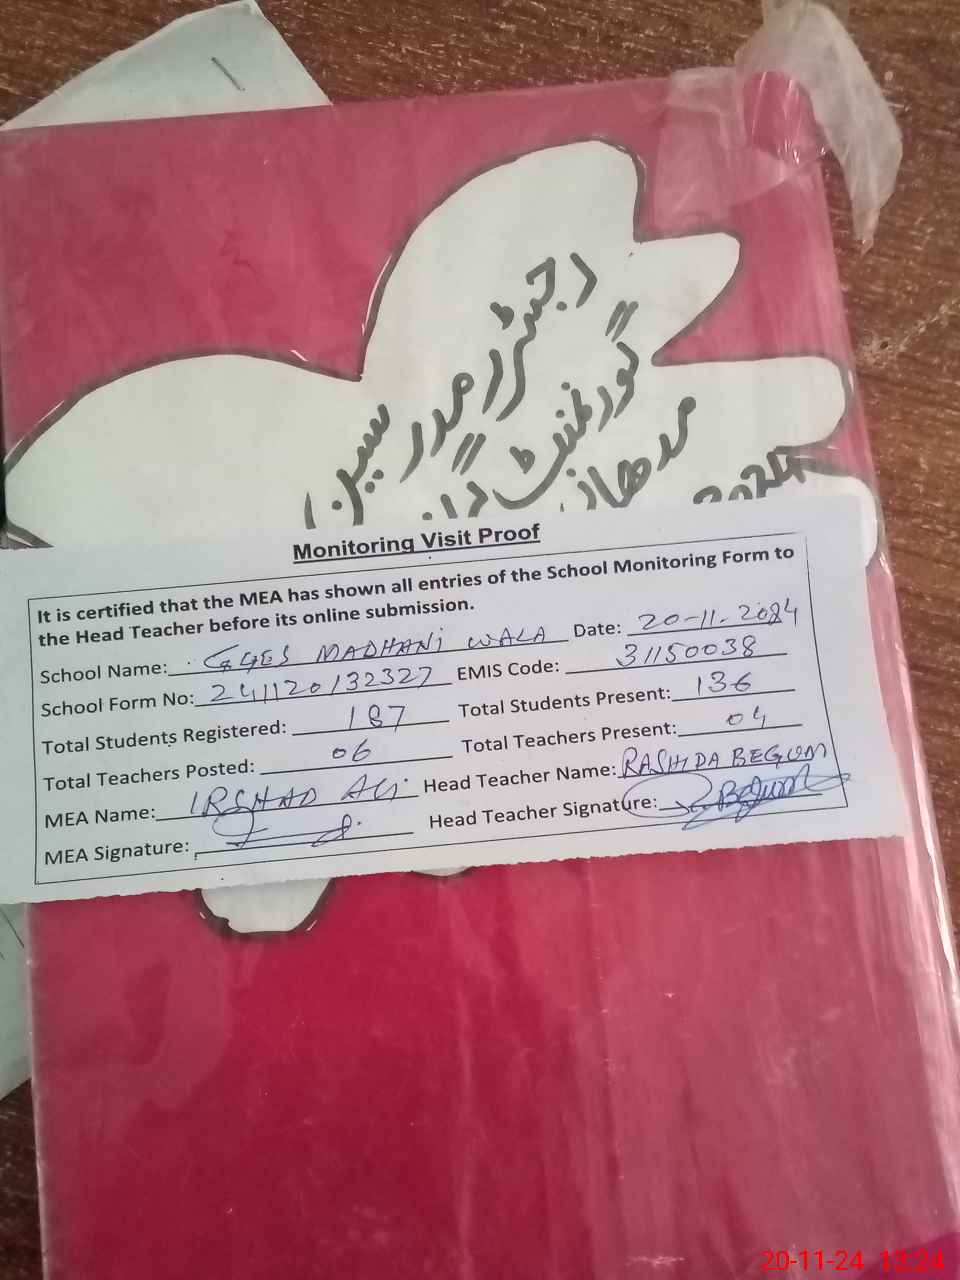 رجسٹرار مدرسین
گورنمنٹ گر
مدھان
Monitoring Visit Proof
It is certified that the MEA has shown all entries of the School Monitoring Form to
the Head Teacher before its online submission.
School Name: GGES MADHANI WALA Date: 20-11-2024
School Form No: 241120132327 EMIS Code: 31150038
Total Students Registered: 187 Total Students Present: 136
Total Teachers Posted: 06 Total Teachers Present: 04
MEA Name: IRSHAD Ali Head Teacher Name: RASHIDA BEGUM
MEA Signature: Head Teacher Signature: R. Begum
20-11-24 12:24